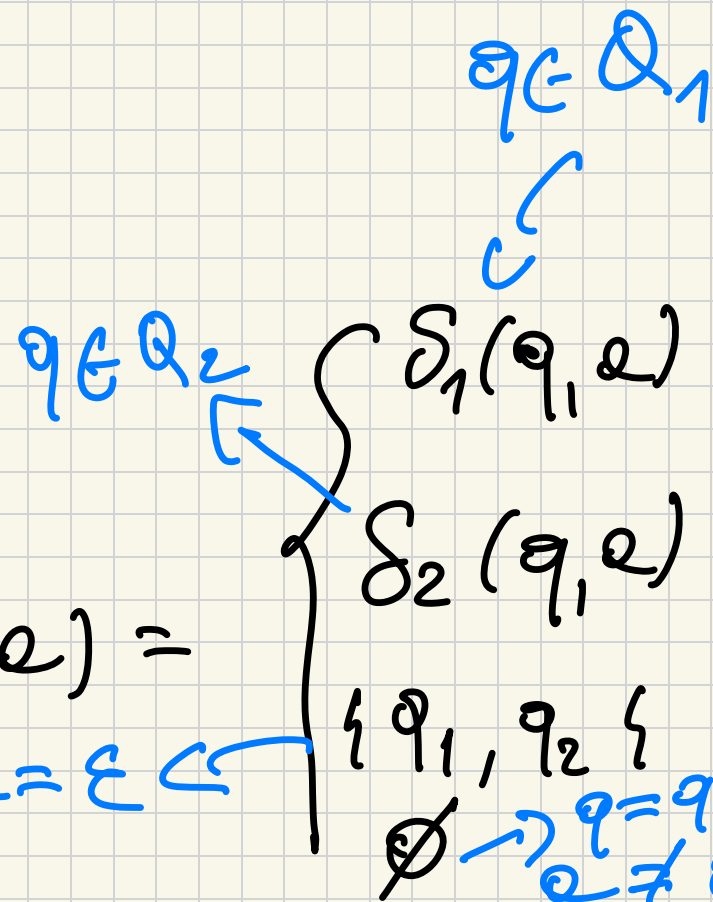 q ∈ Q1
q ∈ Q2
δ1(q, a)
δ2(q, a)
a) =
{q1, q2}
= ε
∅ → q = q
a ≠